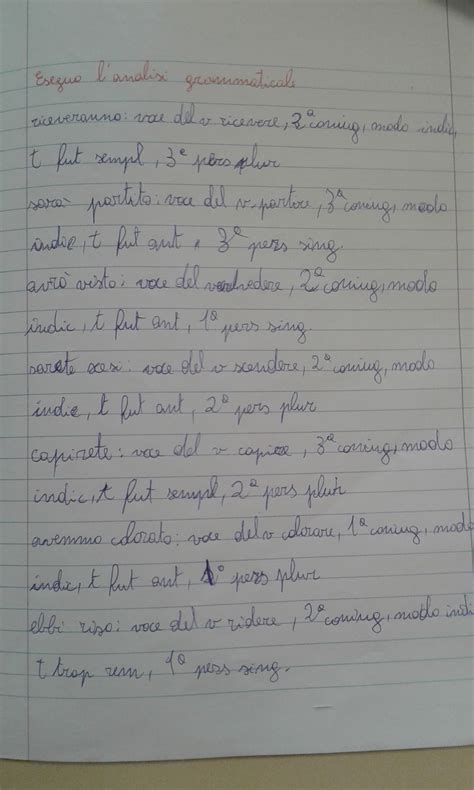 Eseguo l'analisi grammaticale
riceveranno: voce del v ricevere, 2ª coniug, modo indic,
t fut sempl, 3ª pers plur
sarà partito: voce del v partire, 3ª coniug, modo
indic, t fut ant e 3ª pers sing.
avrò visto: voce del vedere, 2ª coniug, modo
indic, t fut ant, 1ª pers sing.
sarete scesi: voce del v scendere, 2ª coniug, modo
indic, t fut ant, 2ª pers plur
capirete: voce del v capire, 3ª coniug, modo
indic, t fut sempl, 2ª pers plur
avemmo colorato: voce del v colorare, 1ª coniug, modo
indic, t fut ant, 1ª pers plur
ebbi riso: voce del v ridere, 2ª coniug, modo indi
t trap rem, 1ª pers sing.